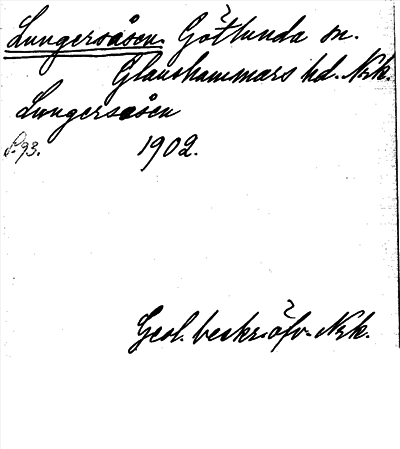 Lungersåsen. Götlunda sn.
Glanshammars hd. Nrk.
Lungersåsen
S. 93. 1902.
Geol. beskr. öfv. Nrk.